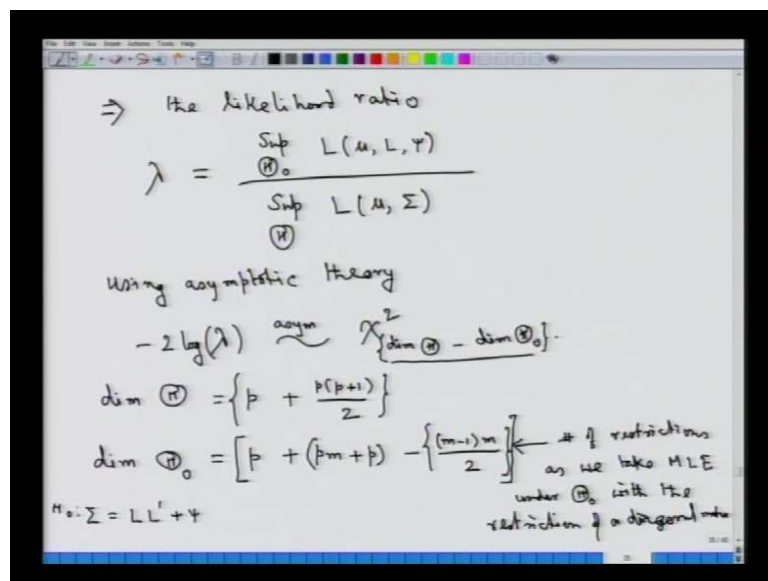 File Edit View Insert Actions Tools Help
⇒ the likelihood ratio
λ = Sup_Θ₀ L(μ, L, Ψ) / Sup_Θ L(μ, Σ)
using asymptotic theory
-2 log(λ) asym ~ χ²_{dim Θ - dim Θ₀}.
dim Θ = {p + p(p+1)/2}
dim Θ₀ = [p + (pm + p) - {(m-1)m/2}] ← # of restrictions
as we take MLE
under Θ₀ with the
restriction of a diagonal
H₀: Σ = LL' + Ψ